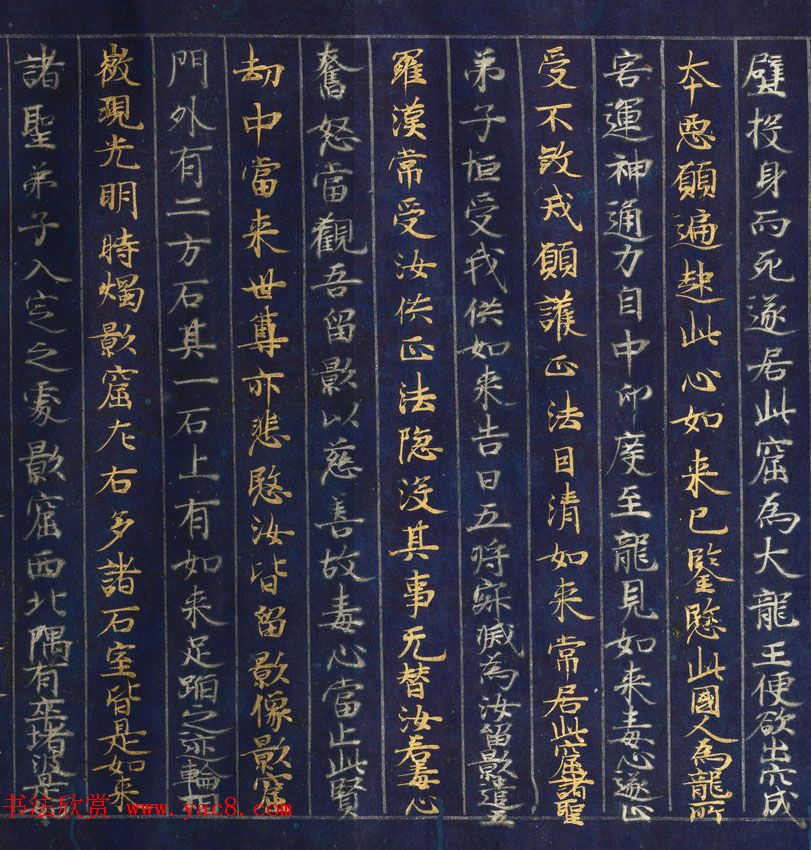 壁投身而死遂居此窟為大龍王便欲出穴成
夲惡願遍起此心如来已鑒愍此國人為龍所
害運神通力自中印度至龍見如来毒心遂止
受不煞戒願護正法目清如来常居此窟諸聖
弟子恒受我供如来告曰五将寐滅為汝留影遣五
羅漢常受汝供正法隐没其事无替汝若毒心
奮怒當觀吾留影以慈善故毒心當止此賢
劫中當来世尊亦悲愍汝皆留影像影窟
門外有二方石其一石上有如来足蹈之迹輪
微現光明時燭影窟左右多諸石室皆是如来
諸聖弟子入定之處影窟西北隅有窣堵波
书法欣赏 www.yac8.com